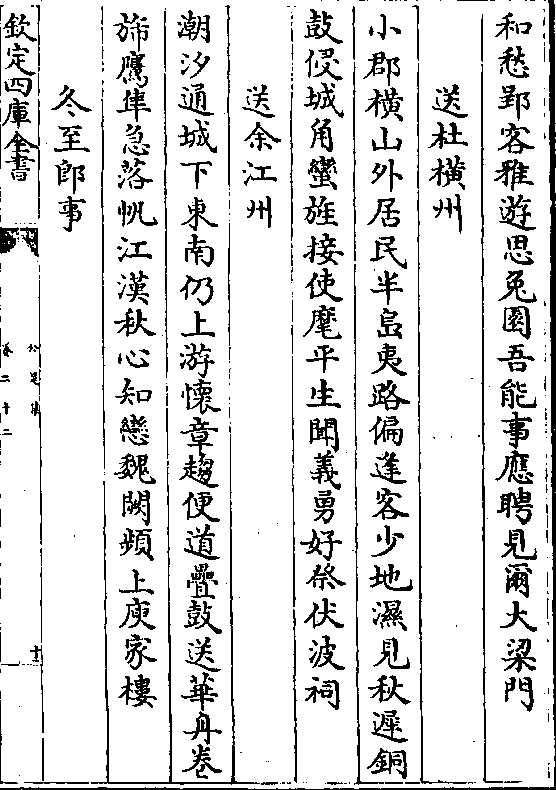 和愁郢客雅遊思兔園吾能事應聘見爾大梁門
送杜橫州
小郡橫山外居民半島夷路偏逢客少地濕見秋遲銅
鼓侵城角蠻旌接使麾平生聞義勇好祭伏波祠
送余江州
潮汐通城下東南仍上游懷章趨便道疊鼓送華舟卷
斾鷹隼急落帆江漢秋心知戀魏闕頻上庾家樓
冬至郎事
欽定四庫全書
公是集
卷二十二
十二